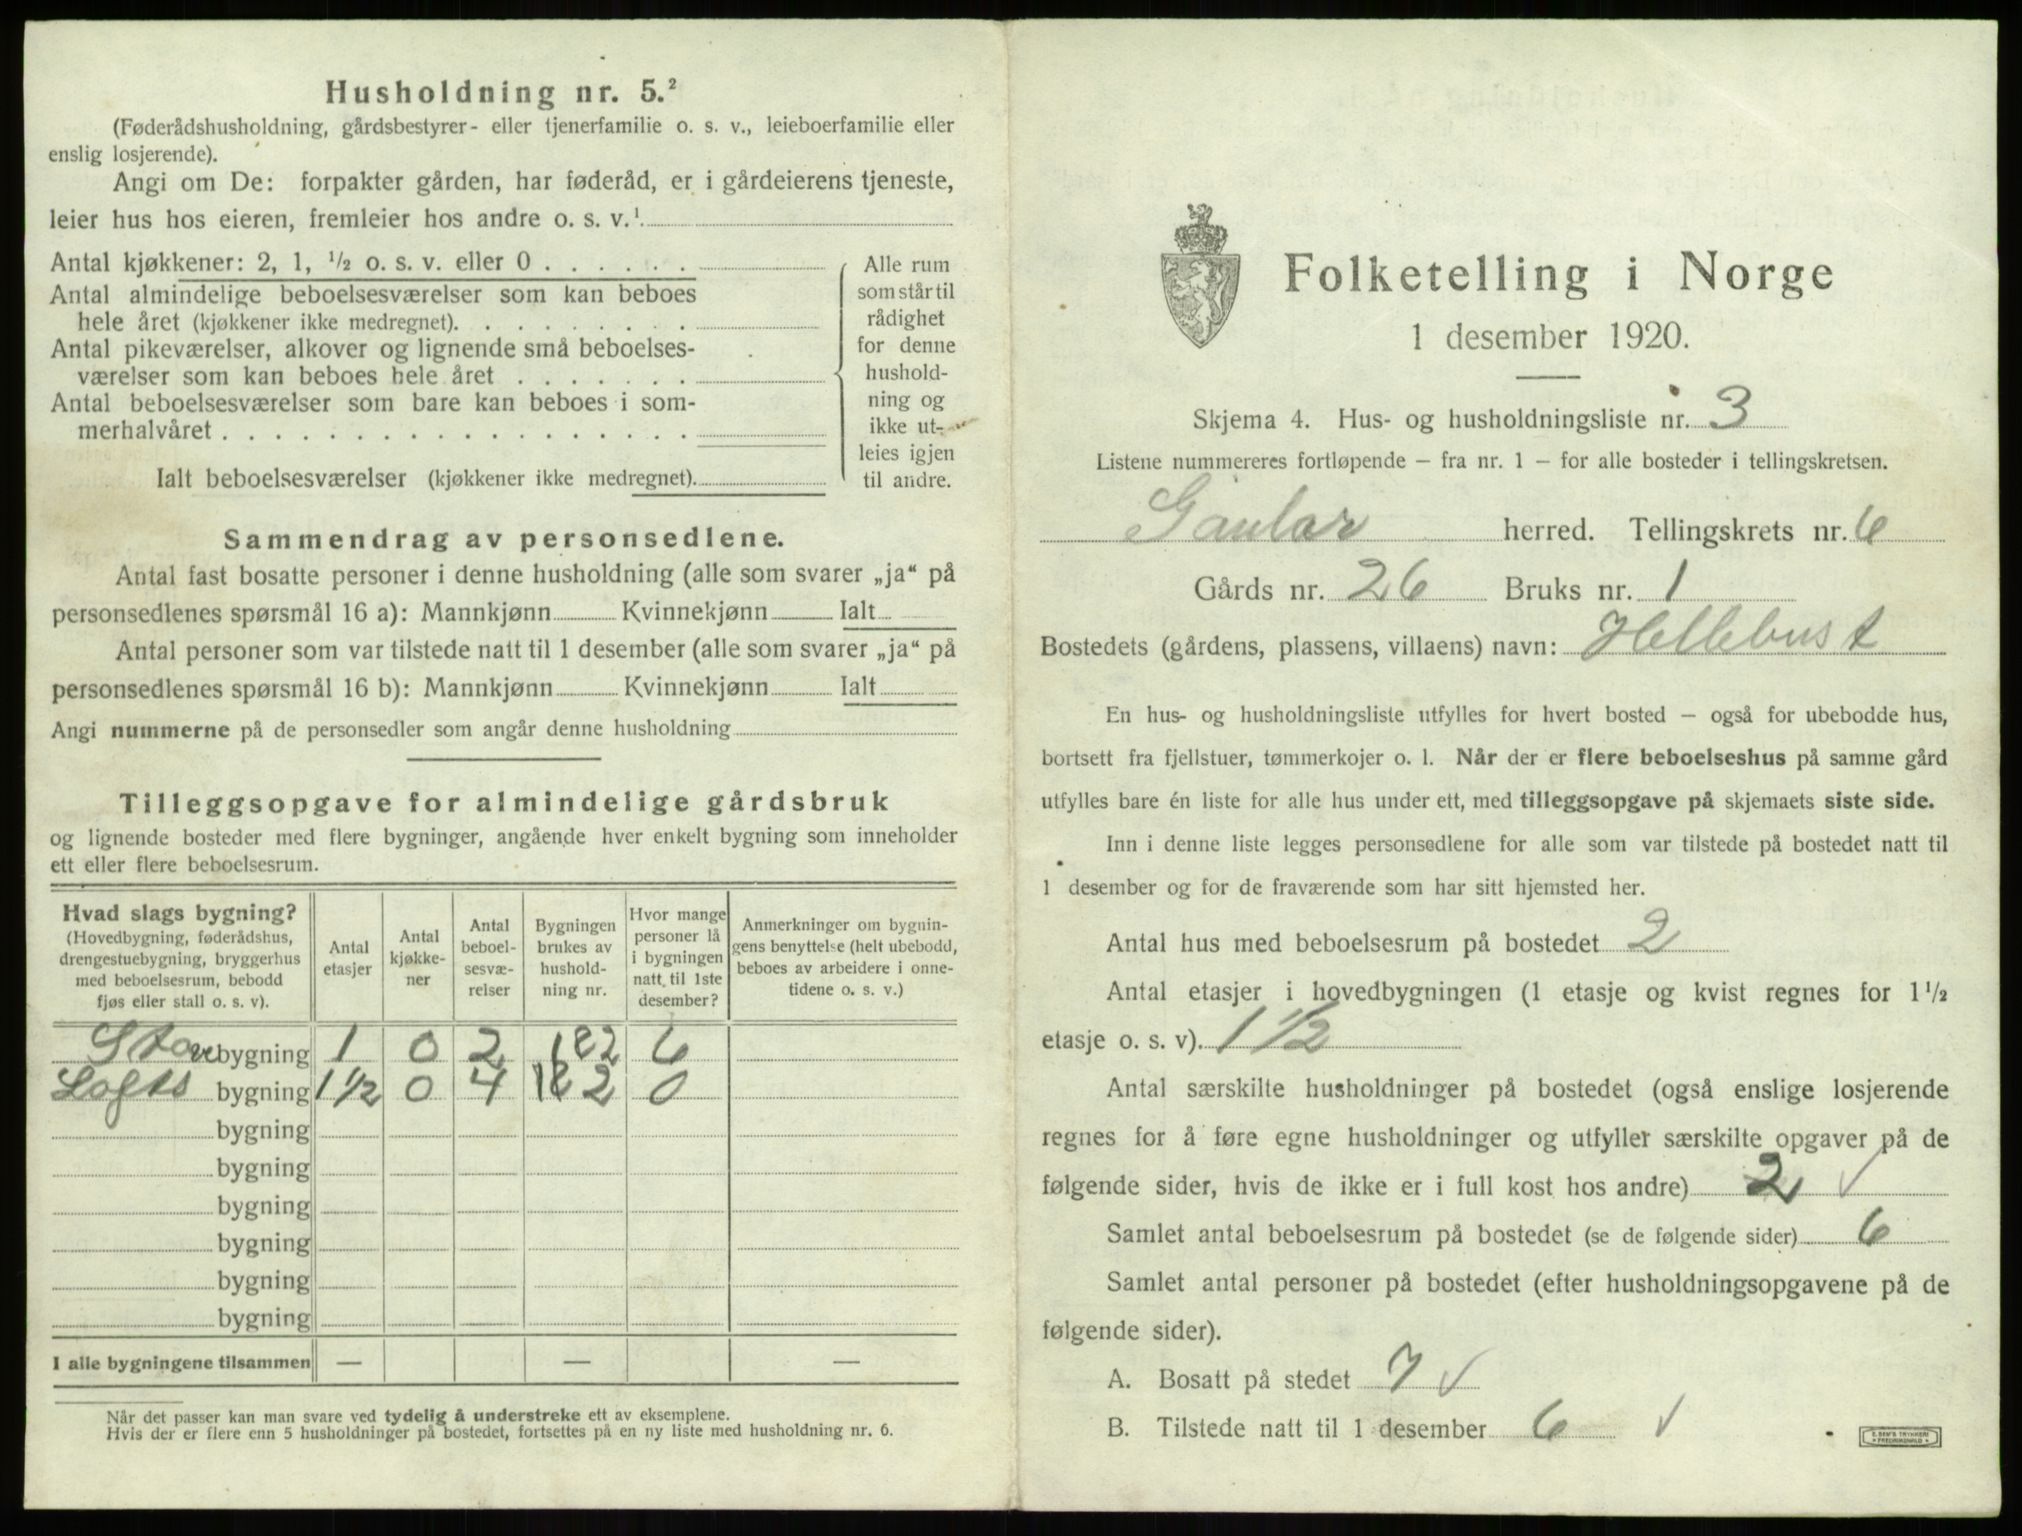 Husholdning nr. 5.²
(Føderådshusholdning, gårdsbestyrer- eller tjenerfamilie o. s. v., leieboerfamilie eller
enslig losjerende).
Angi om De: forpakter gården, har føderåd, er i gårdeierens tjeneste,
leier hus hos eieren, fremleier hos andre o. s. v.¹
Antal kjøkkener: 2, 1, ½ o. s. v. eller 0 . . . . . .
Antal almindelige beboelsesværelser som kan beboes
hele året (kjøkkener ikke medregnet). . . . . . . . .
Antal pikeværelser, alkover og lignende små beboelses-
værelser som kan beboes hele året . . . . . . .
Antal beboelsesværelser som bare kan beboes i som-
merhalvåret . . . . . . . . . . . . . . . . . .
Ialt beboelsesværelser (kjøkkener ikke medregnet).
Alle rum
som står til
rådighet
for denne
hushold-
ning og
ikke ut-
leies igjen
til andre.
Sammendrag av personsedlene.
Antal fast bosatte personer i denne husholdning (alle som svarer „ja“ på
personsedlenes spørsmål 16 a): Mannkjønn Kvinnekjønn Ialt
Antal personer som var tilstede natt til 1 desember (alle som svarer „ja“ på
personsedlenes spørsmål 16 b): Mannkjønn Kvinnekjønn Ialt
Angi nummerne på de personsedler som angår denne husholdning
Tilleggsopgave for almindelige gårdsbruk
og lignende bosteder med flere bygninger, angående hver enkelt bygning som inneholder
ett eller flere beboelsesrum.
Hvad slags bygning?
(Hovedbygning, føderådshus,
drengestuebygning, bryggerhus
med beboelsesrum, bebodd
fjøs eller stall o. s. v).
Antal
etasjer
Antal
kjøkke-
ner
Antal
beboel-
sesvæ-
relser
Bygningen
brukes av
hushold-
ning nr.
Hvor mange
personer lå
i bygningen
natt til 1ste
desember?
Anmerkninger om bygnin-
gens benyttelse (helt ubebodd,
beboes av arbeidere i onne-
tidene o. s. v.)
bygning 1 0 2 1 & 2 6
Lofts bygning 1½ 0 4 1 & 2 0
bygning
bygning
bygning
bygning
bygning
bygning
I alle bygningene tilsammen — — —
Når det passer kan man svare ved tydelig å understreke ett av eksemplene.
Hvis der er flere enn 5 husholdninger på bostedet, fortsettes på en ny liste med husholdning nr. 6.
Folketelling i Norge
1 desember 1920.
Skjema 4. Hus- og husholdningsliste nr. 3
Listene nummereres fortløpende – fra nr. 1 – for alle bosteder i tellingskretsen.
Gaular herred. Tellingskrets nr. 6
Gårds nr. 26 Bruks nr. 1
Bostedets (gårdens, plassens, villaens) navn: Hellebust
En hus- og husholdningsliste utfylles for hvert bosted – også for ubebodde hus,
bortsett fra fjellstuer, tømmerkojer o. l. Når der er flere beboelseshus på samme gård
utfylles bare én liste for alle hus under ett, med tilleggsopgave på skjemaets siste side.
Inn i denne liste legges personsedlene for alle som var tilstede på bostedet natt til
1 desember og for de fraværende som har sitt hjemsted her.
Antal hus med beboelsesrum på bostedet 2
Antal etasjer i hovedbygningen (1 etasje og kvist regnes for 1½
etasje o. s. v). 1½
Antal særskilte husholdninger på bostedet (også enslige losjerende
regnes for å føre egne husholdninger og utfyller særskilte opgaver på de
følgende sider, hvis de ikke er i full kost hos andre) 2 ✓
Samlet antal beboelsesrum på bostedet (se de følgende sider) 6
Samlet antal personer på bostedet (efter husholdningsopgavene på de
følgende sider).
A. Bosatt på stedet 7 ✓
B. Tilstede natt til 1 desember 6 ✓